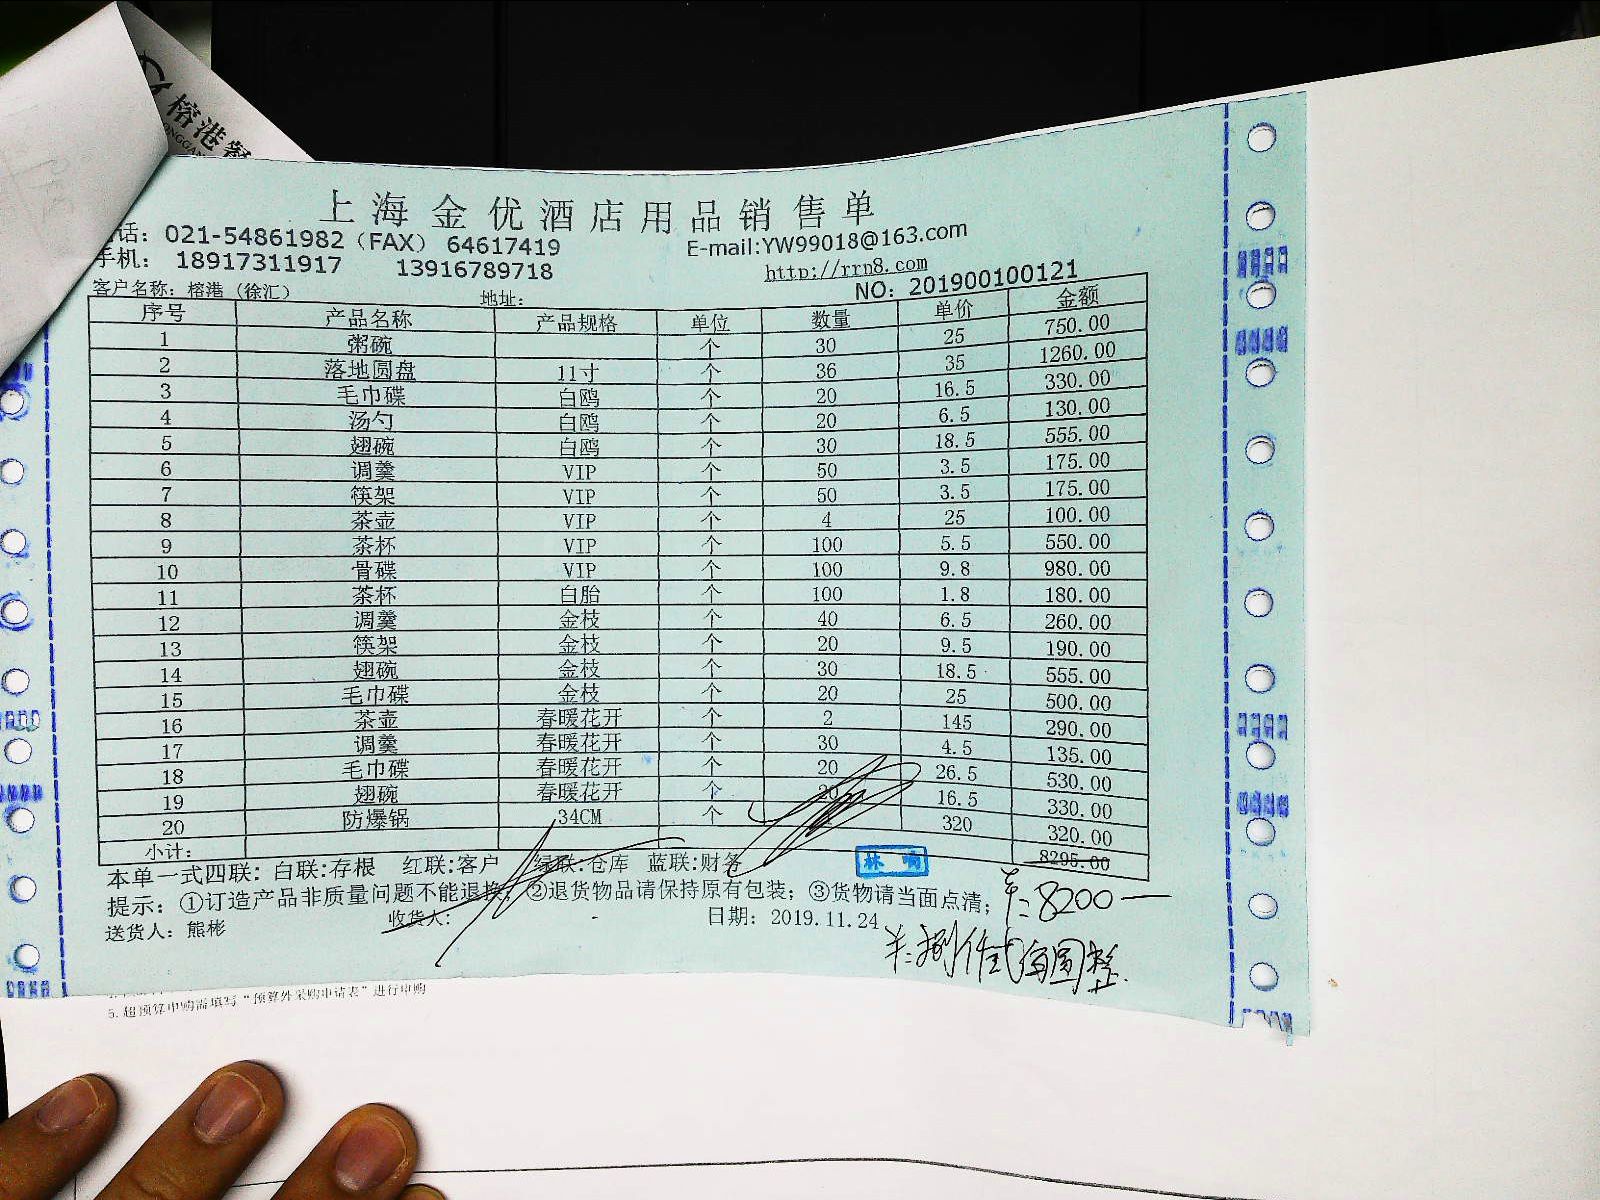 榕港餐
上海金优酒店用品销售单
话：021-54861982（FAX） 64617419 E-mail:YW99018@163.com
手机： 18917311917 13916789718 http://rrn8.com
客户名称：榕港（徐汇） 地址： NO：201900100121
序号 产品名称 产品规格 单位 数量 单价 金额
1 粥碗 个 30 25 750.00
2 落地圆盘 11寸 个 36 35 1260.00
3 毛巾碟 白鸥 个 20 16.5 330.00
4 汤勺 白鸥 个 20 6.5 130.00
5 翅碗 白鸥 个 30 18.5 555.00
6 调羹 VIP 个 50 3.5 175.00
7 筷架 VIP 个 50 3.5 175.00
8 茶壶 VIP 个 4 25 100.00
9 茶杯 VIP 个 100 5.5 550.00
10 骨碟 VIP 个 100 9.8 980.00
11 茶杯 白胎 个 100 1.8 180.00
12 调羹 金枝 个 40 6.5 260.00
13 筷架 金枝 个 20 9.5 190.00
14 翅碗 金枝 个 30 18.5 555.00
15 毛巾碟 金枝 个 20 25 500.00
16 茶壶 春暖花开 个 2 145 290.00
17 调羹 春暖花开 个 30 4.5 135.00
18 毛巾碟 春暖花开 个 20 26.5 530.00
19 翅碗 春暖花开 个 20 16.5 330.00
20 防爆锅 34CM 个 320 320.00
小计： 8295.00
本单一式四联：白联:存根 红联:客户 绿联:仓库 蓝联:财务
林
提示：①订造产品非质量问题不能退换；②退货物品请保持原有包装；③货物请当面点清；
8200一
送货人：熊彬 收货人： 日期：2019.11.24
捌仟贰佰圆整
5.超预算申购需填写“预算外采购申请表”进行申购